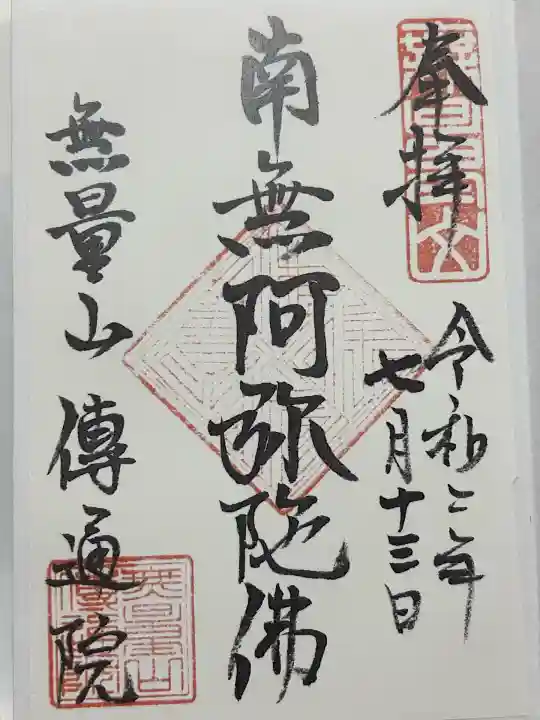 奉拝
令和二年
七月十三日
南無阿弥陀佛
無量山 傳通院